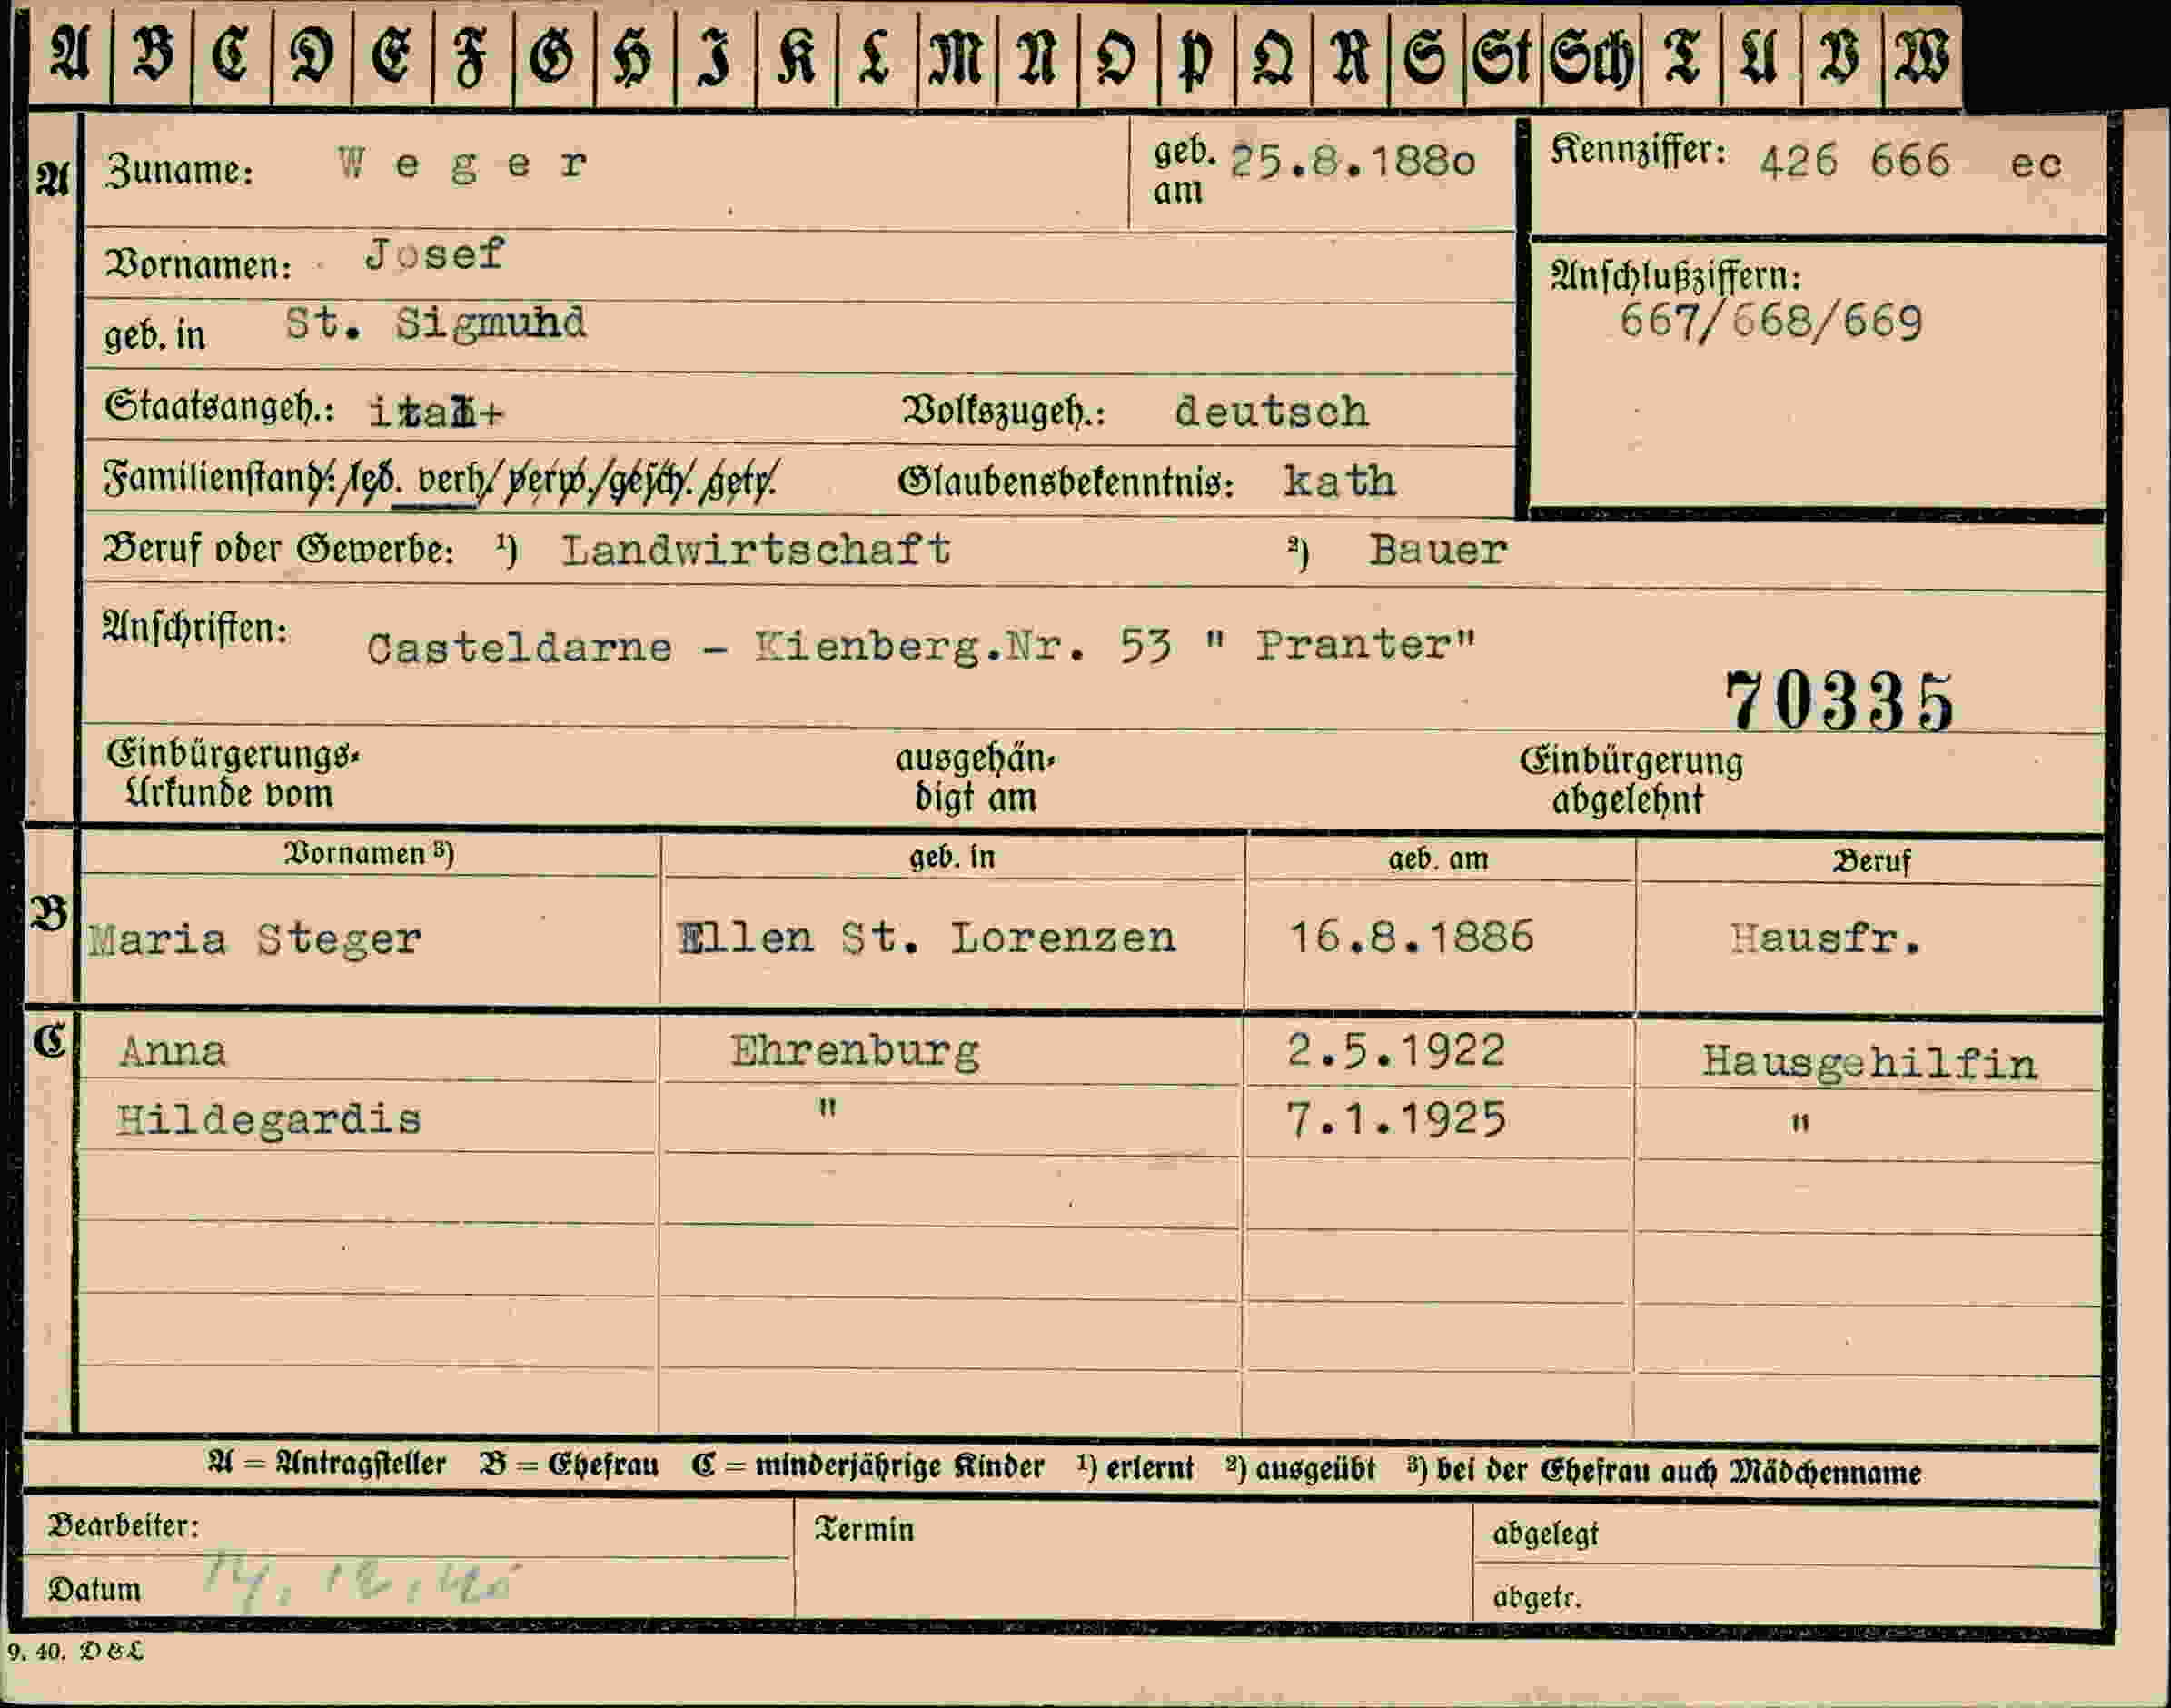 A B C D E F G H I K L M N O P Q R S St Sch T U V W
A Zuname: Weger geb. am 25.8.188o Kennziffer: 426 666 ec
Vornamen: Josef
Anschlußziffern:
geb. in St. Sigmund 667/668/669
Staatsangeh.: ital+ Volkszugeh.: deutsch
Familienstand: led. verh. verw. gesch. getr. Glaubensbekenntnis: kath
Beruf oder Gewerbe: ¹) Landwirtschaft ²) Bauer
Anschriften: Casteldarne - Kienberg.Nr. 53 " Pranter"
70335
Einbürgerungs- ausgehän- Einbürgerung
Urkunde vom digt am abgelehnt
Vornamen ³) geb. in geb. am Beruf
B Maria Steger Ellen St. Lorenzen 16.8.1886 Hausfr.
C Anna Ehrenburg 2.5.1922 Hausgehilfin
Hildegardis " 7.1.1925 "
A = Antragsteller B = Ehefrau C = minderjährige Kinder ¹) erlernt ²) ausgeübt ³) bei der Ehefrau auch Mädchenname
Bearbeiter: Termin abgelegt
Datum abgetr.
9. 40. D & L